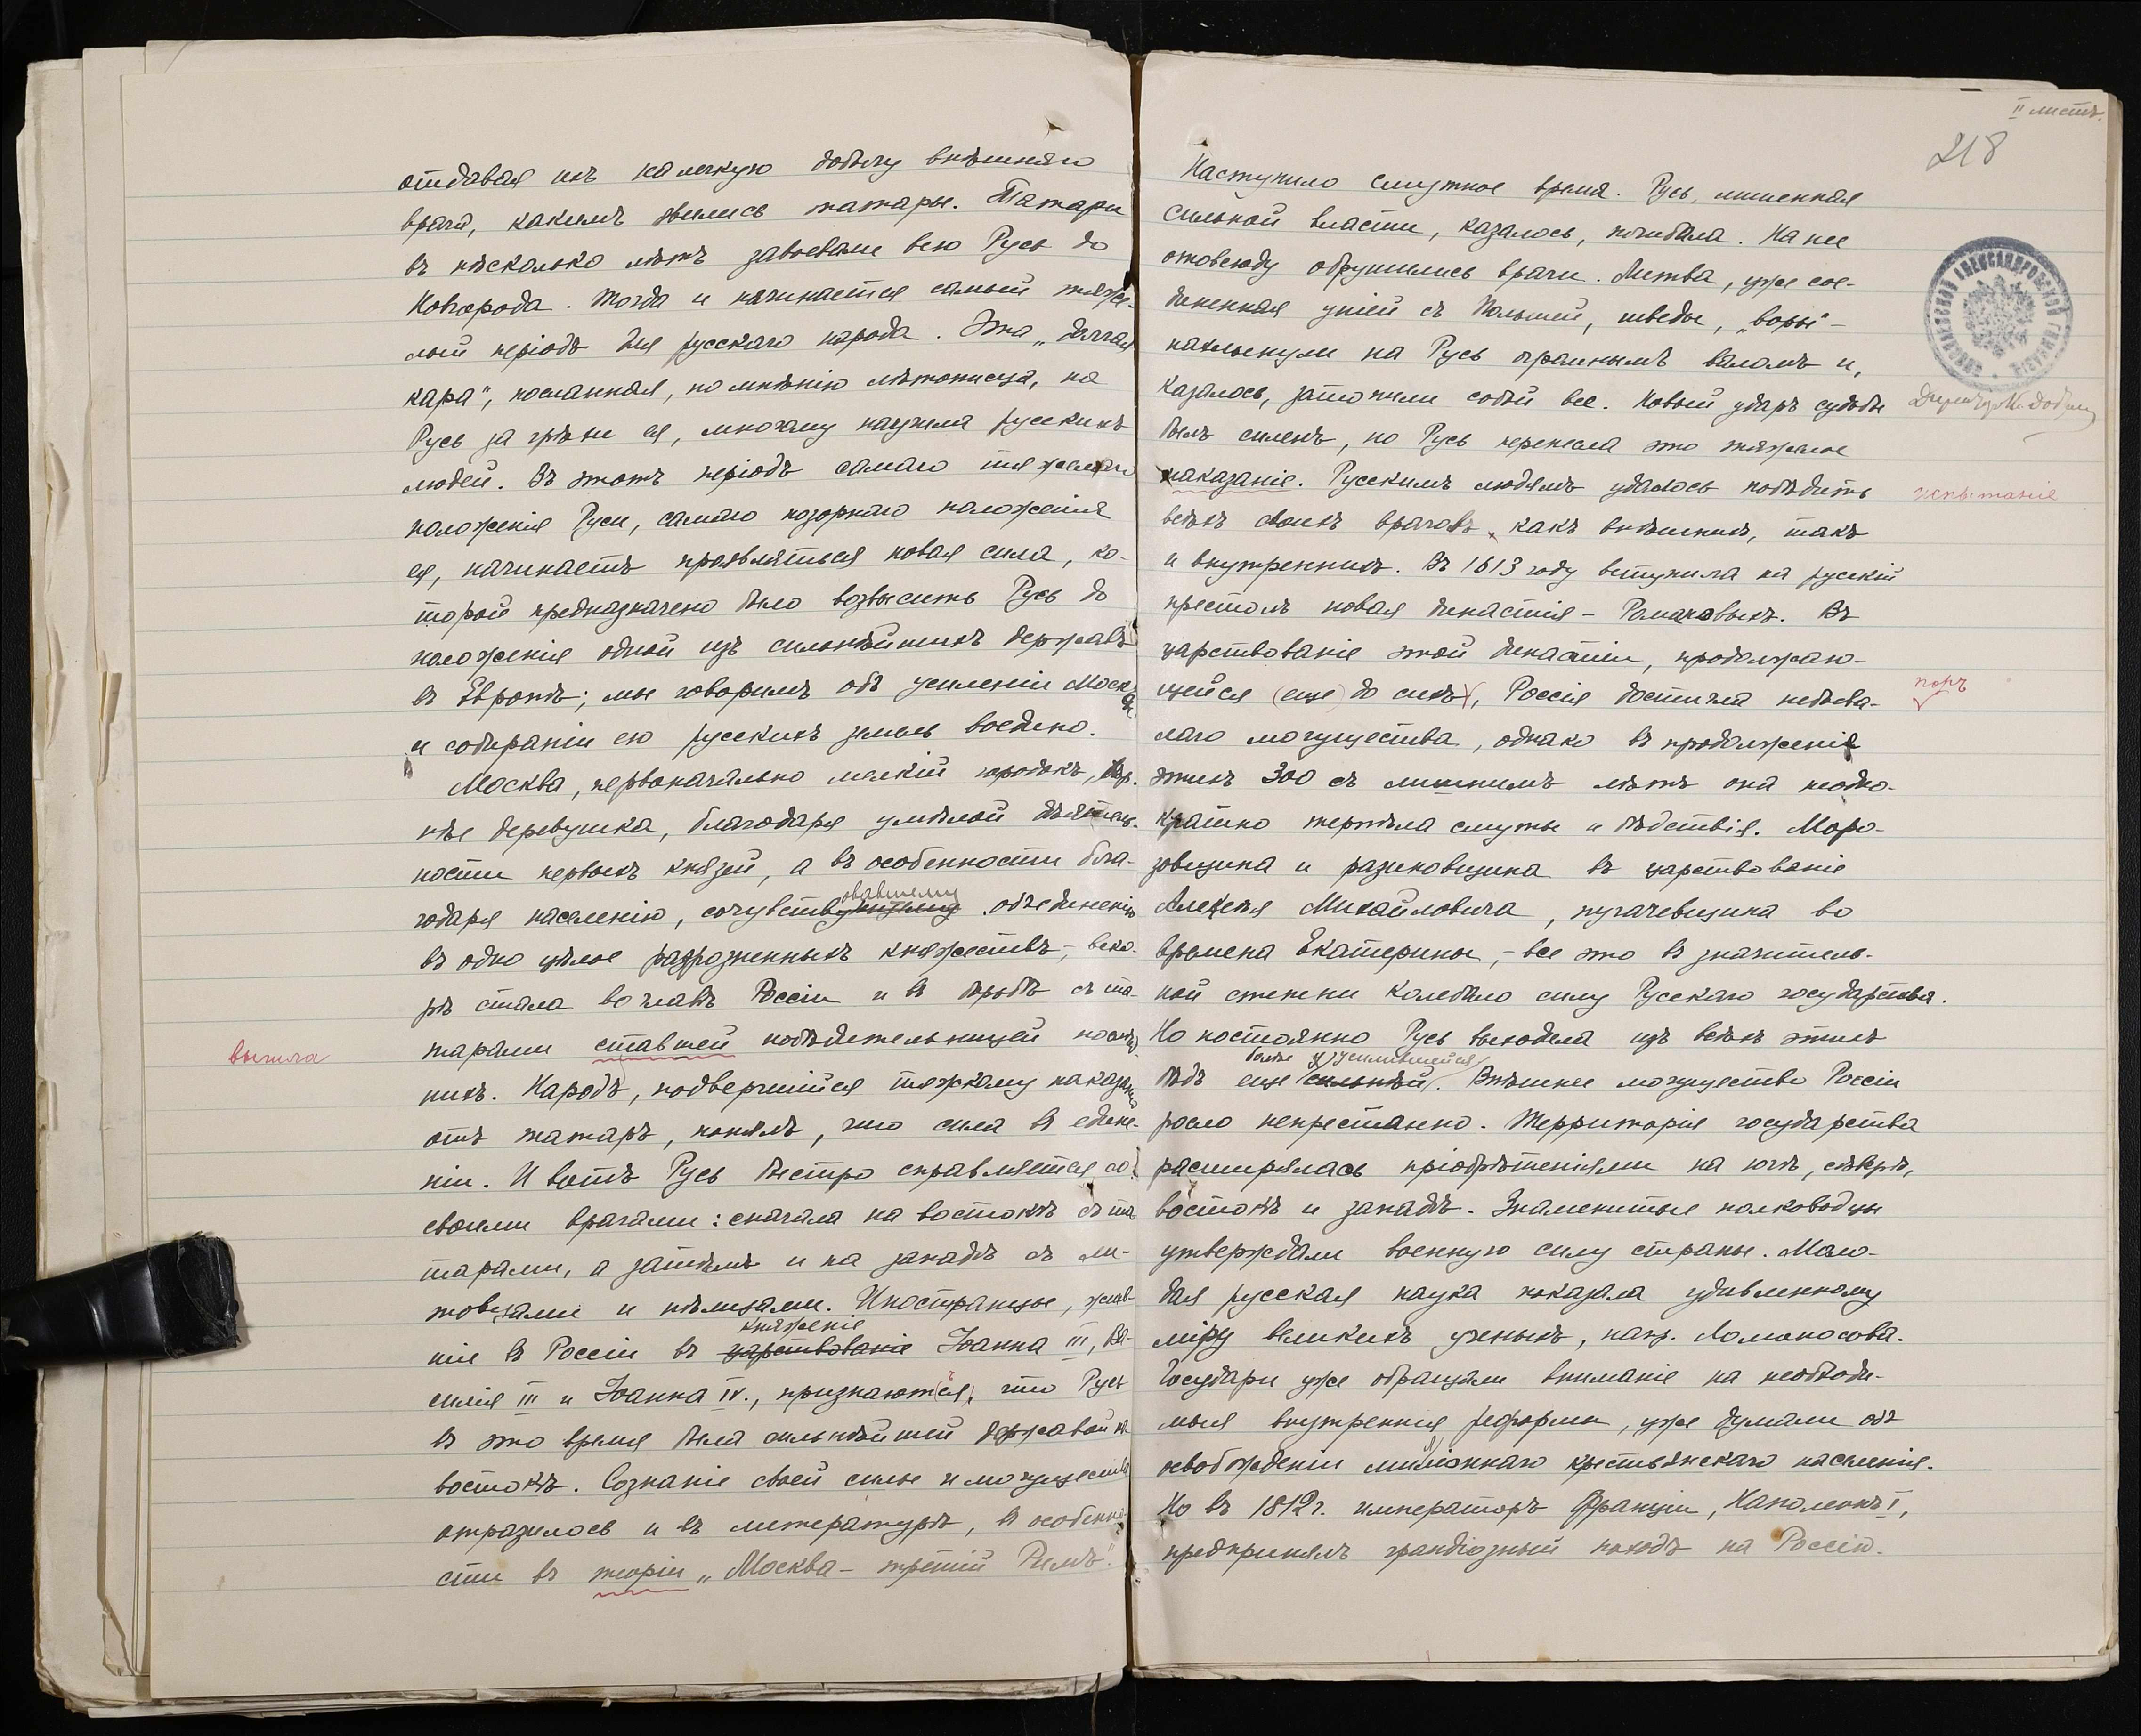 отдавая ихъ на легкую добычу внѣшняго
врага, какимъ явились татары. Татары
въ нѣсколько лѣтъ завоевали всю Русь до
Новгорода. Тогда и начинается самый тяже-
лый періодъ для русскаго народа. Эта „долгая
кара“, посланная, по мнѣнію лѣтописца, на
Русь за грѣхи ея, многому научила русскихъ
людей. Въ этотъ періодъ самаго тяжелаго
положенія Руси, самаго позорнаго положенія
ея, начинаетъ проявляться новая сила, ко-
торой предназначено было возвысить Русь до
положенія одной изъ сильнѣйшихъ державъ
въ Европѣ; мы говоримъ объ усиленіи Москвы
и собираніи ею русскихъ земель воедино.
Москва, первоначально мелкій городокъ,
нѣе деревушка, благодаря умѣлой дѣятель-
ности первыхъ князей, а въ особенности бла-
годаря населенію, сочувствовавшему объединенію
въ одно цѣлое разрозненныхъ княжествъ, вско-
рѣ стала во главѣ Россіи и въ борьбѣ съ та-
вышла
тарами ставшей побѣдительницей
нихъ. Народъ, подвергшійся тяжкому наказанію
отъ татаръ, понялъ, что сила въ едине-
ніи. И вотъ Русь быстро справляется со
своими врагами: сначала на востокѣ съ та-
тарами, а затѣмъ и на западѣ съ ли-
товцами и нѣмцами. Иностранцы, жив-
княженіе
шіе въ Россіи въ царствованіе Іоанна III, Ва-
силія III и Іоанна IV., признаются, что Русь
въ это время была сильнѣйшей державой на
востокѣ. Сознаніе своей силы и могущества
отразилось и въ литературѣ, въ особенно-
сти въ теоріи „Москва – третій Римъ“.
II листъ.
218
Наступило смутное время. Русь, лишенная
сильной власти, казалось, погибала. На нее
отовсюду обрушились враги. Литва, уже сое-
диненная уніей съ Польшей, шведы, „воры“ –
нахлынули на Русь огромнымъ валомъ и,
казалось, затопили собой все. Новый ударъ судьбы
былъ силенъ, но Русь перенесла это тяжелое
наказаніе. Русскимъ людямъ удалось побѣдить
испытаніе
всѣхъ своихъ враговъ, какъ внѣшнихъ, такъ
и внутреннихъ. Въ 1613 году вступила на русскій
престолъ новая династія – Романовыхъ. Въ
царствованіе этой династіи, продолжаю-
щейся (еще) до сихъ, Россія достигла небыва-
поръ
лаго могущества, однако въ продолженіе
этихъ 300 съ лишнимъ лѣтъ она неодно-
кратно терпѣла смуты и бѣдствія. Моро-
зовщина и разиновщина въ царствованіе
Алексѣя Михайловича, пугачевщина во
времена Екатерины, – все это въ значитель-
ной степени колебало силу Русскаго государства.
Но постоянно Русь выходила изъ всѣхъ этихъ
болѣе усилившейся
бѣдъ еще сильнѣй. Внѣшнее могущество Россіи
росло непрестанно. Территорія государства
расширялась пріобрѣтеніями на югѣ, сѣверѣ,
востокѣ и западѣ. Знаменитые полководцы
утверждали военную силу страны. Моло-
дая русская наука показала удивленному
міру великихъ ученыхъ, напр. Ломоносова.
Государи уже обращали вниманіе на необходи-
мыя внутреннія реформы, уже думали объ
освобожденіи милліоннаго крестьянскаго населенія.
Но въ 1812 г. императоръ Франціи, Наполеонъ I,
предпринялъ грандіозный походъ на Россію.